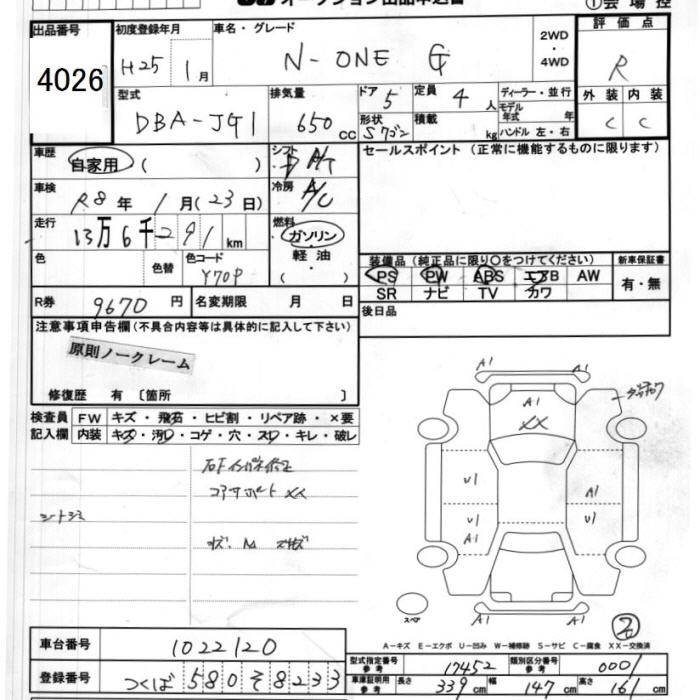 オークション出品申込書
①会場控
出品番号
4026
初度登録年月
H25年 1月
車名・グレード
N-ONE G
2WD・4WD
評価点
R
型式
DBA-JG1
排気量
650 cc
ドア 5
形状 5ドア
定員 4人
積載 kg
ディーラー・並行
モデル年式 年
ハンドル 左・右
外装 内装
C C
車歴
自家用 ( )
シフト
AT
セールスポイント (正常に機能するものに限ります)
車検
R8年 1月(23日)
冷房
A/C
走行
13万6千291 km
燃料
ガソリン
軽油
( )
色
色替
色コード
Y70P
装備品 (純正品に限り○をつけてください)
PS PW ABS エアB AW
SR ナビ TV カワ
新車保証書
有・無
R券
9670円
名変期限 月 日
後日品
注意事項申告欄(不具合内容等は具体的に記入して下さい)
原則ノークレーム
修復歴 有 〔箇所 〕
検査員記入欄
FW キズ・飛石・ヒビ割・リペア跡・×要
内装 キズ・汚レ・コゲ・穴・スレ・キレ・破レ
コアサポートXX
シートシミ
A1 A1
A1
XX
U1
U1
A1
A1
U1
A1 A1
スペア
A-キズ E-エクボ U-凹み W-補修跡 S-サビ C-腐食 XX-交換済
車台番号
1022120
登録番号
つくば 580 そ 8233
型式指定番号 参考
17452
類別区分番号 参考
0001
車庫証明用 参考
長さ 339cm 幅 147cm 高さ 161cm